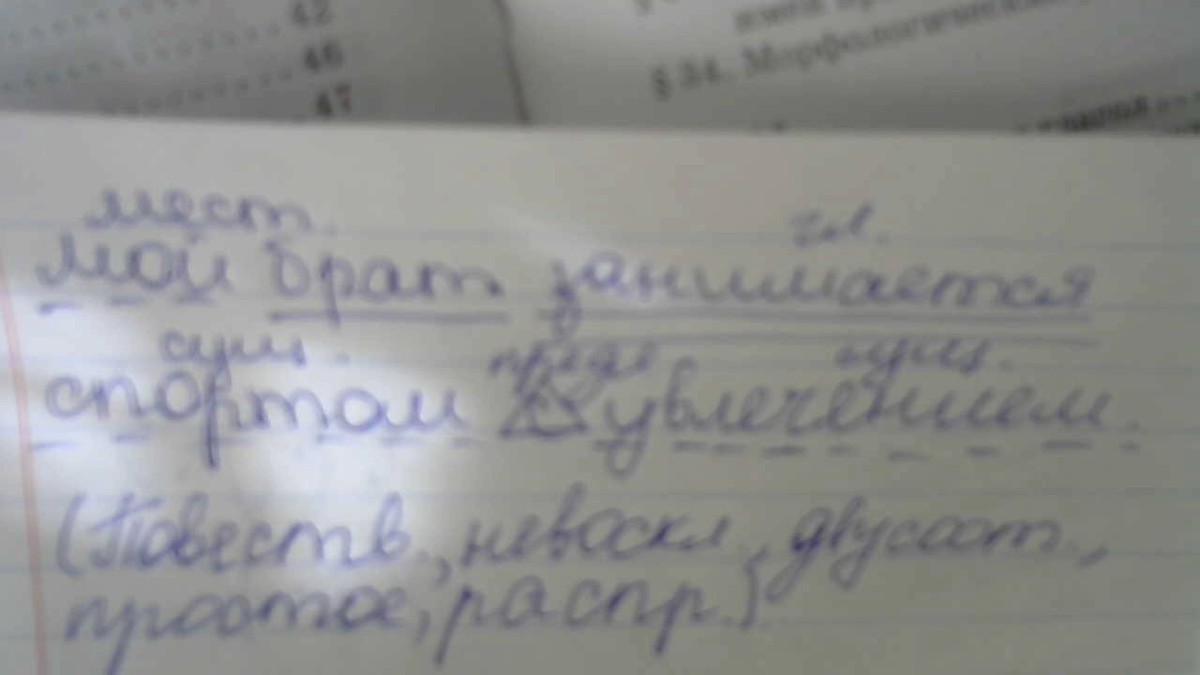 42
46
47
§ 34. Морфологический
мест. гл.
Мой брат занимается
сущ. предл сущ.
спортом с увлечением.
(Повеств., невоскл., двусост.,
простое, распр.)